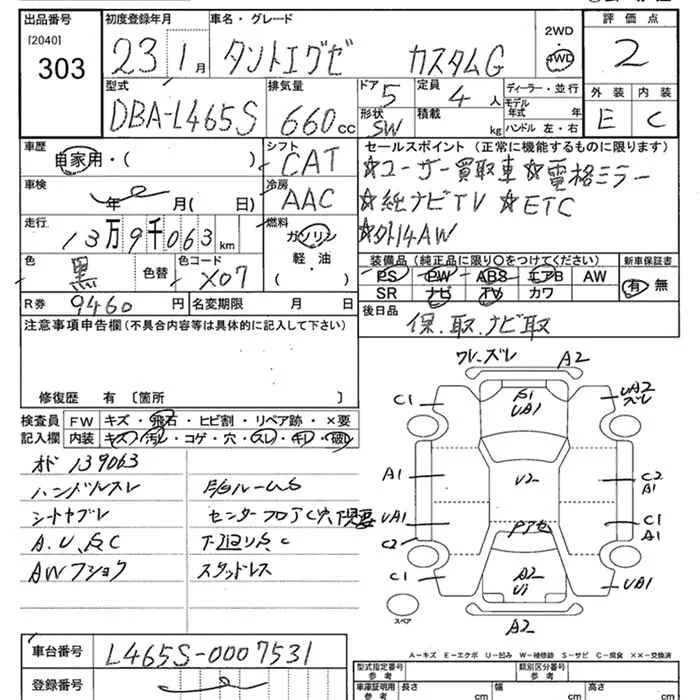 出品番号 初度登録年月 車名・グレード 2WD 評価点
[2040] 303 23 1月 タントエグゼ カスタムG 4WD 2
型式 排気量 ドア 定員 ディーラー・並行 外装 内装
DBA-L465S 660cc 5 4人 モデル年式 年 E C
形状 積載 SW kg ハンドル 左・右
車歴 シフト セールスポイント (正常に機能するものに限ります)
自家用・( ) CAT ☆ユーザー買取車 ☆電格ミラー
車検 冷房 ☆純ナビTV ☆ETC
年 月( 日) AAC ☆外14AW
走行 燃料
13万9千063km ガソリン 装備品 (純正品に限り○をつけてください) 新車保証書
色 色替 色コード 軽・油 PS PW ABS エアB AW 有 無
黒 X07 ( ) SR ナビ TV カワ
R券 9460円 名変期限 月 日 後日品
注意事項申告欄 (不具合内容等は具体的に記入して下さい) 保.取.ナビ取
修復歴 有 〔箇所 〕
検査員 FW キズ・飛石・ヒビ割・リペア跡・×要
記入欄 内装 キズ・汚レ・コゲ・穴・スレ・キレ・破レ
オド 139063
ハンドルスレ
シートヤブレ センターフロア
A.U、 C 下廻り C
AW スタッドレス
ズレ A2
A1
UA1
C1 UA2 ズレ
A1 U2 C2 A1
UA1 C1 A1
C2
C1 A2 UA1
A2
スペア
A-キズ E-エクボ U-凹み W-補修跡 S-サビ C-腐食 ××-交換済
車台番号 L465S-0007531 型式指定番号 参考 類別区分番号 参考
登録番号 車庫証明用 参考 長さ cm 幅 cm 高さ cm